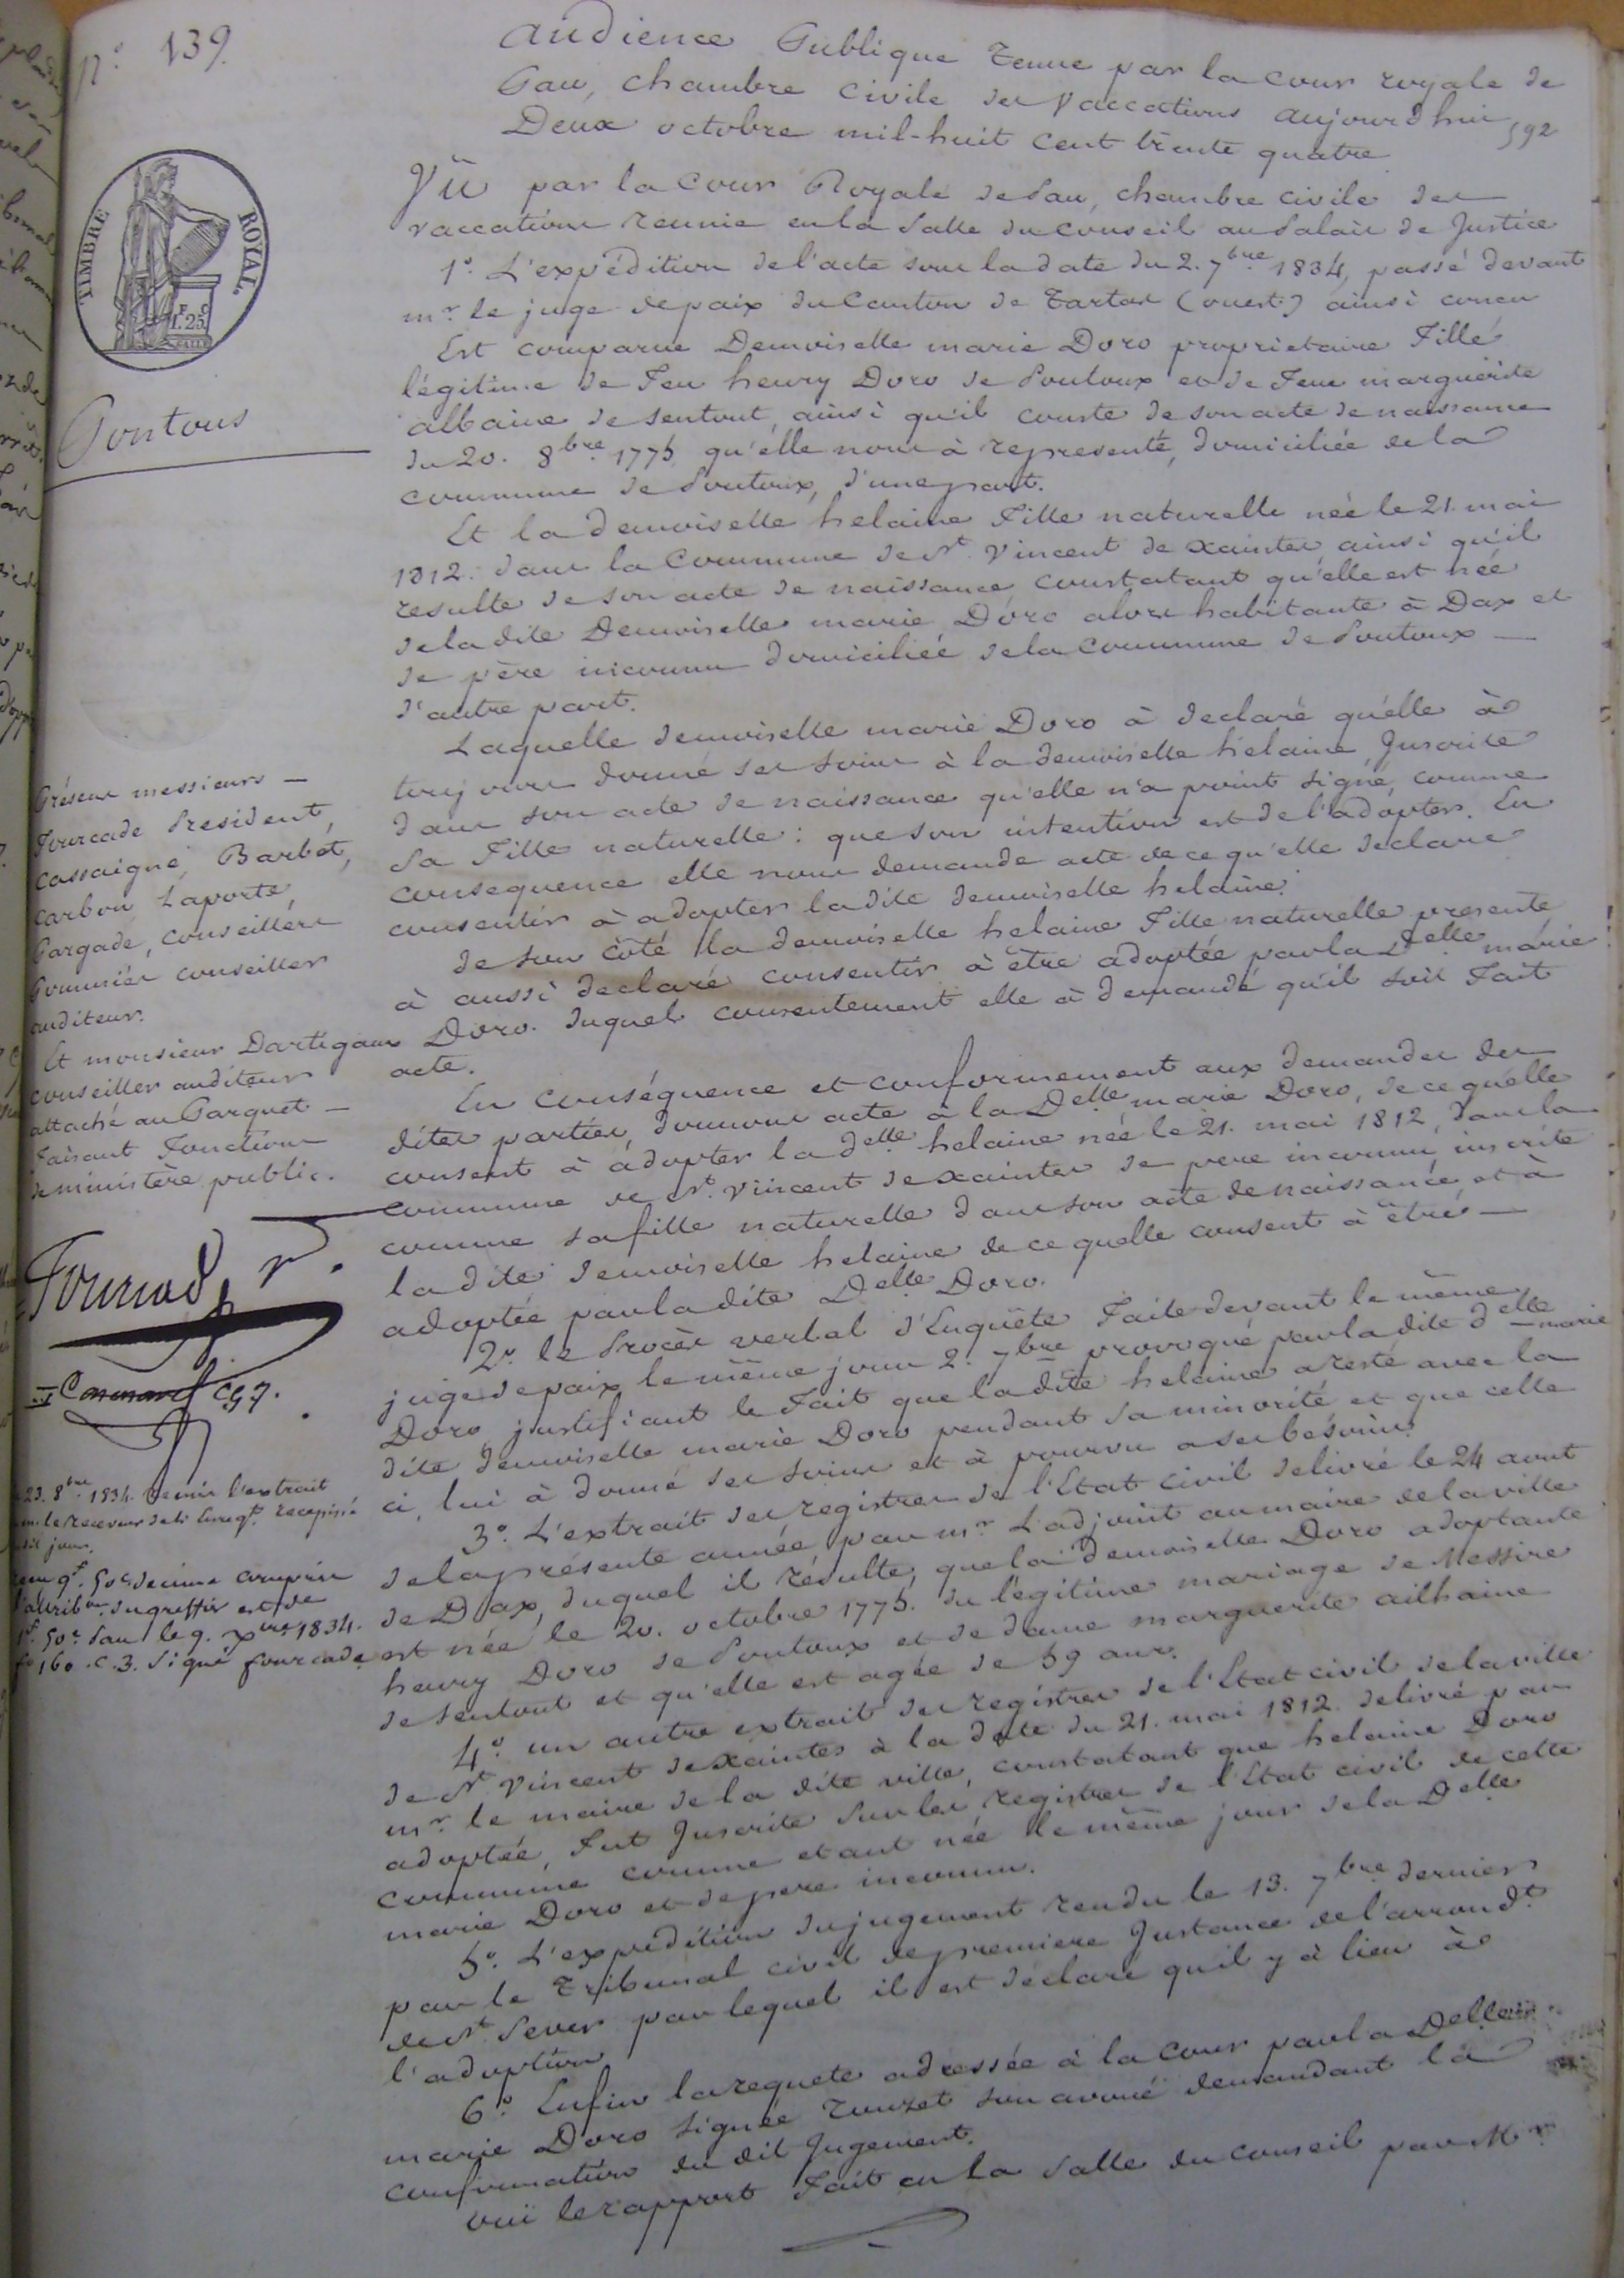 N.° 139.
Audience Publique tenue par la cour royale de
Pau, chambre civile des vaccations aujourd'hui
Deux octobre mil-huit cent trente quatre
592
TIMBRE ROYAL.
F. C
1.25
Pontous
Vû par la Cour Royale de Pau, chambre civile des
vaccations reunie en la Salle du conseil au Palais de Justice
1.° L'expédition de l'acte sous la date du 2. 7bre 1834, passé devant
mr. le juge de paix du Canton de Tartas (ouest) ainsi concu
Est comparue Demoiselle marie Doro proprietaire Fille
légitime de Feu henry Doro de Pontoux et de Feue marguérite
albaine de sentout, ainsi qu'il conste de son acte de naissance
du 20. 8bre 1775 qu'elle nous à representé, domiciliée de la
commune de Pontoux, d'une part.
Et la demoiselle helaine Fille naturelle née le 21. mai
1812. dans la Commune de St. Vincent de xaintes ainsi qu'il
resulte de son acte de naissance, constatant qu'elle est née
de la dite Demoiselle marie Doro alors habitante à Dax et
de père inconnu domiciliée de la Commune de Pontoux —
d'autre part.
Laquelle demoiselle marie Doro à declaré qu'elle à
toujours donné ses soins à la demoiselle hélaine Inscrite
dans son acte de naissance qu'elle n'a point signé, comme
Sa Fille naturelle : que son intention est de l'adopter. En
consequence elle nous demande acte de ce qu'elle declare
consentir à adopter la dite demoiselle helaine.
de son côté la demoiselle helaine Fille naturelle presente
à aussi declaré consentir à être adoptée par la Delle marie
Doro. duquel consentement elle à demandé qu'il soit Fait
acte.
En conséquence et conformement aux demandes des
dites parties, donnons acte à la Delle marie Doro, de ce qu'elle
consent à adopter la delle helaine née le 21. mai 1812, dans la
commune de St. Vincent de xaintes de pere inconnu, inscrite
comme sa fille naturelle dans son acte de naissance, et à
la dite demoiselle helaine de ce quelle consent à être —
adoptée par la dite Delle Doro.
2.° le Procès verbal d'Enquête Faite devant le même
juge de paix le même jour 2. 7bre provoqué par la dite delle marie
Doro justifiant le Fait que la dite helaine a resté avec la
dite demoiselle marie Doro pendant sa minorité et que celle
ci, lui à donné ses soins et à pourvu a ses bésoins.
3.° L'extrait des registres de l'Etat civil delivré le 24 aout
de la présente année par mr. L'adjoint au maire de la ville
de Dax, duquel il résulte, que la demoiselle Doro adoptante
est née le 20. octobre 1775. du légitime mariage de Messire
henry Doro de Pontoux et de dame marguerite ailhaine
de sentout et qu'elle est agée de 59 ans.
4.° un autre extrait des registres de l'Etat civil de la ville
de St Vincent de xaintes à la date du 21. mai 1812. delivré par
mr. le maire de la dite ville, constatant que helaine Doro
adoptée, Fut Inscrite sur les registres de l'Etat civil de cette
commune comme etant née le même jour de la Delle
marie Doro et de pere inconnu.
5.° L'expedition du jugement rendu le 13. 7bre dernier
par le Tribunal civil de premiere Instance de l'arrondt.
de St. Sever par lequel il est déclaré qu'il y à lieu à
l'adoption
6.° Enfin la requete adressée à la Cour par la Delle
marie Doro signée Touzet son avoué demandant la
confirmation du dit Jugement.
oui le rapport Fait en la Salle du conseil par Mr.
Présens messieurs —
Fourcade President,
cassaigne, Barbet,
Carbon Laporte,
Gargade, conseillers
conseiller
auditeur.
Et monsieur Dartigaux
conseiller auditeur
attaché au Parquet —
Faisant Fonctions
de ministère public.
23. 8bre 1834. Remis l'extrait
le receveur de l'Enregt. recepissé
dudit jour.
reçu 9f. 50c decime compris
l'attribon. du greffier est de
1f. 50c. Pau le 9. xbre 1834.
f° 160. C. 3. Signé fourcade